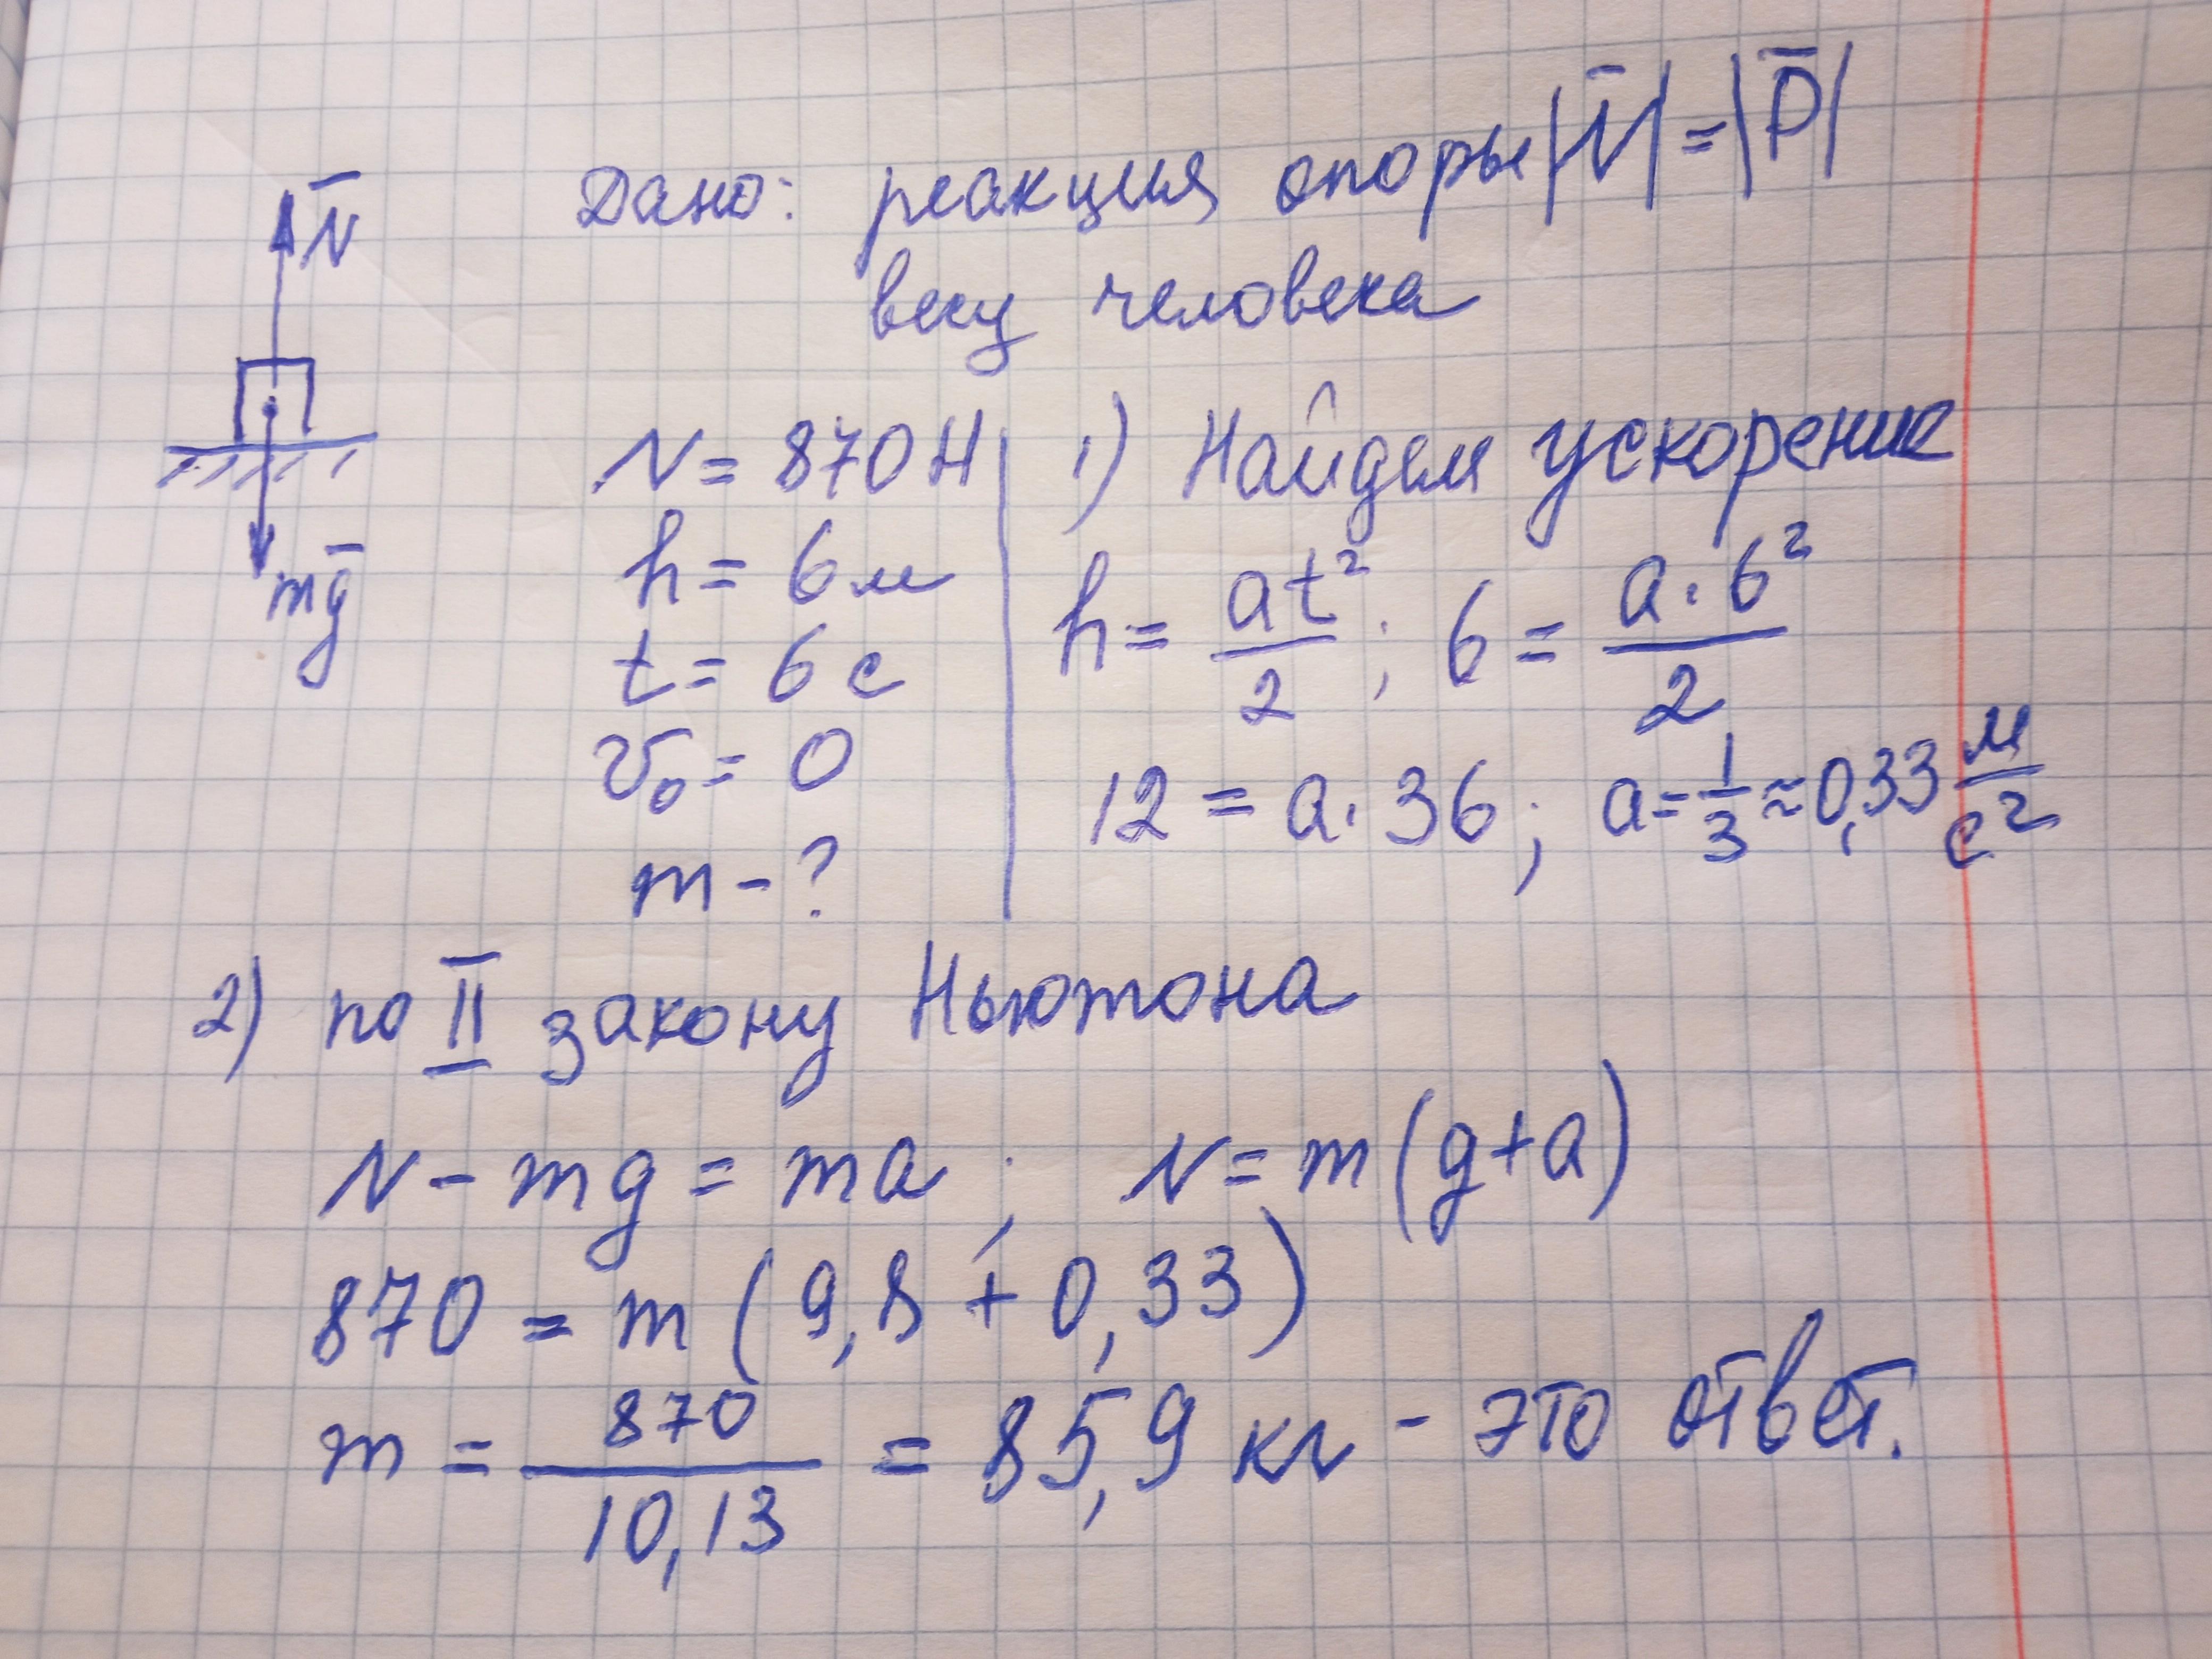 Дано: реакция опоры |N̄| = |P̄|
весу человека
N̄
mḡ
N = 870 Н
h = 6 м
t = 6 с
v₀ = 0
m - ?
1) Найдем ускорение
h = at²/2 ; 6 = a · 6²/2
12 = a · 36 ; a = 1/3 ≈ 0,33 м/с²
2) по II закону Ньютона
N - mg = ma ; N = m(g+a)
870 = m(9,8 + 0,33)
m = 870/10,13 = 85,9 кг - это ответ.